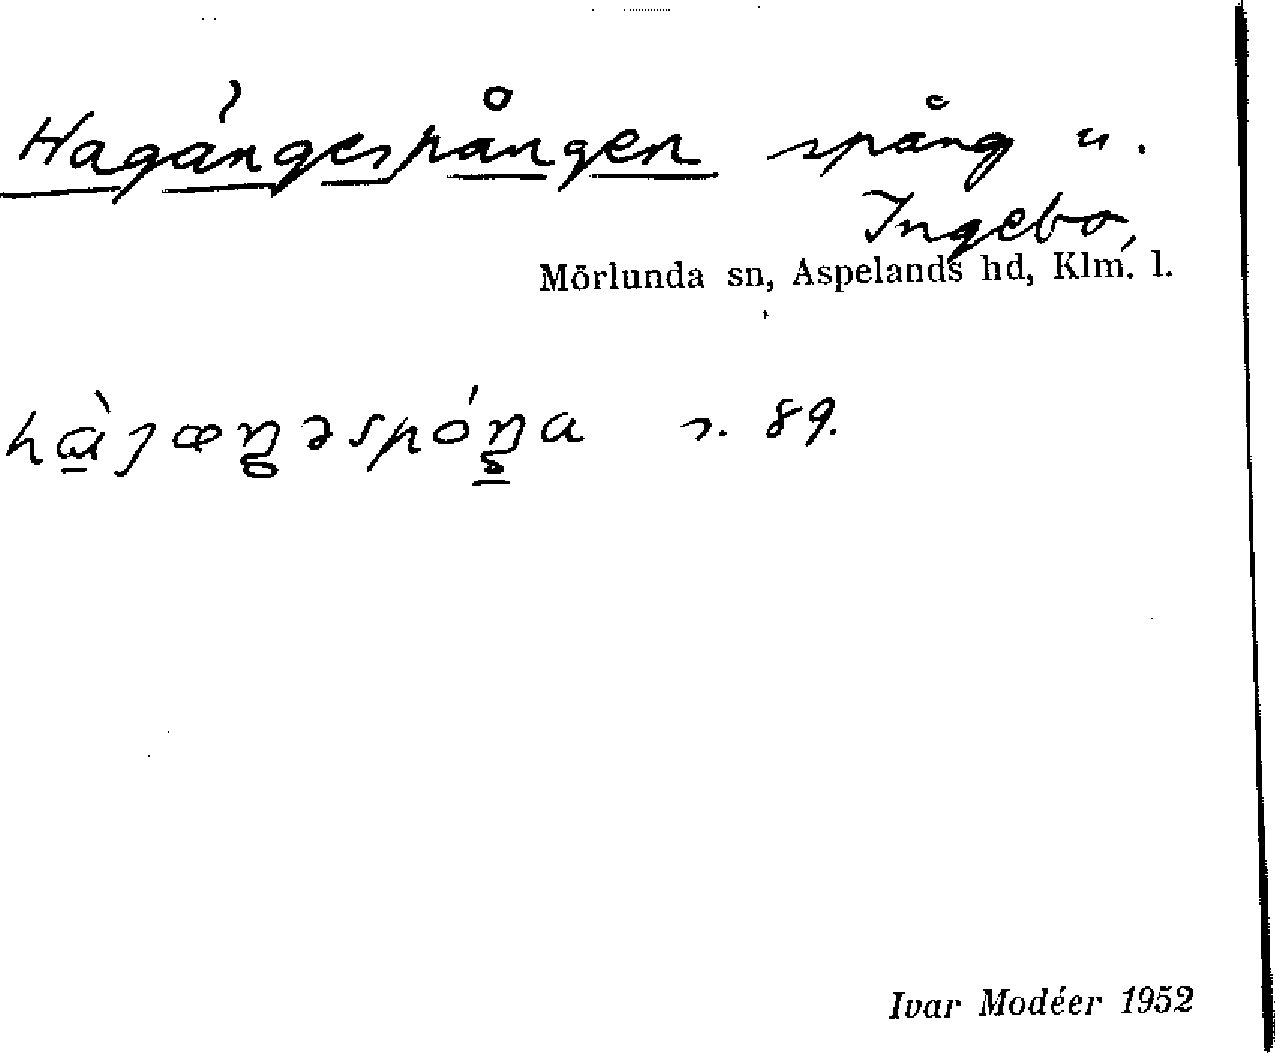 Hagängespången spång u.
Ingebo,
Mörlunda sn, Aspelands hd, Klm. l.
s. 89.
Ivar Modéer 1952